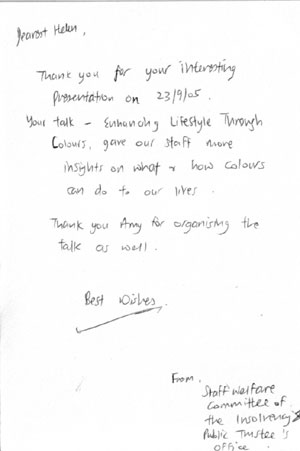 Dearest Helen,
Thank you for your interesting
presentation on 23/9/05.
Your talk - Enhancing Lifestyle Through
Colours, gave our staff more
insights on what & how colours
can do to our lives.
Thank you Amy for organising the
talk as well.
Best Wishes.
From,
Staff Welfare
Committee of
the Insolvency &
Public Trustee's
Office